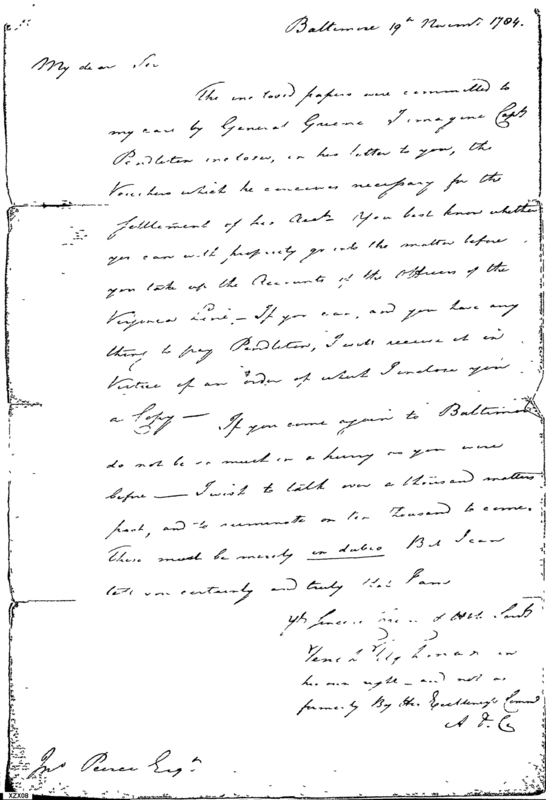 Baltimore 19th Novemr. 1784.
My dear Sir
The inclosed papers were committed to
my care by General Greene I imagine Capt
Pendleton incloses, in his letter to you, the
Vouchers which he conceives necessary for the
settlement of his Acct. You best know whether
you can with propriety go into the matter before
you take up the Accounts of the Officers of the
Virginia Line. — If you can, and you have any
thing to pay Pendleton, I will receive it in
Virtue of an order of which I inclose you
a Copy — If you come again to Baltimore
do not be so much in a hurry as you were
before — I wish to talk over a thousand matters
past, and to ruminate on ten thousand to come.
These must be merely in dubio But I can
tell you certainly and truly that I am
Yr. sincere friend & Hble Servt
Tench Tilghman in
his own right — and not as
formerly By His Excellency's Command
A D C
Jno. Pierce Esqr.
XZX08